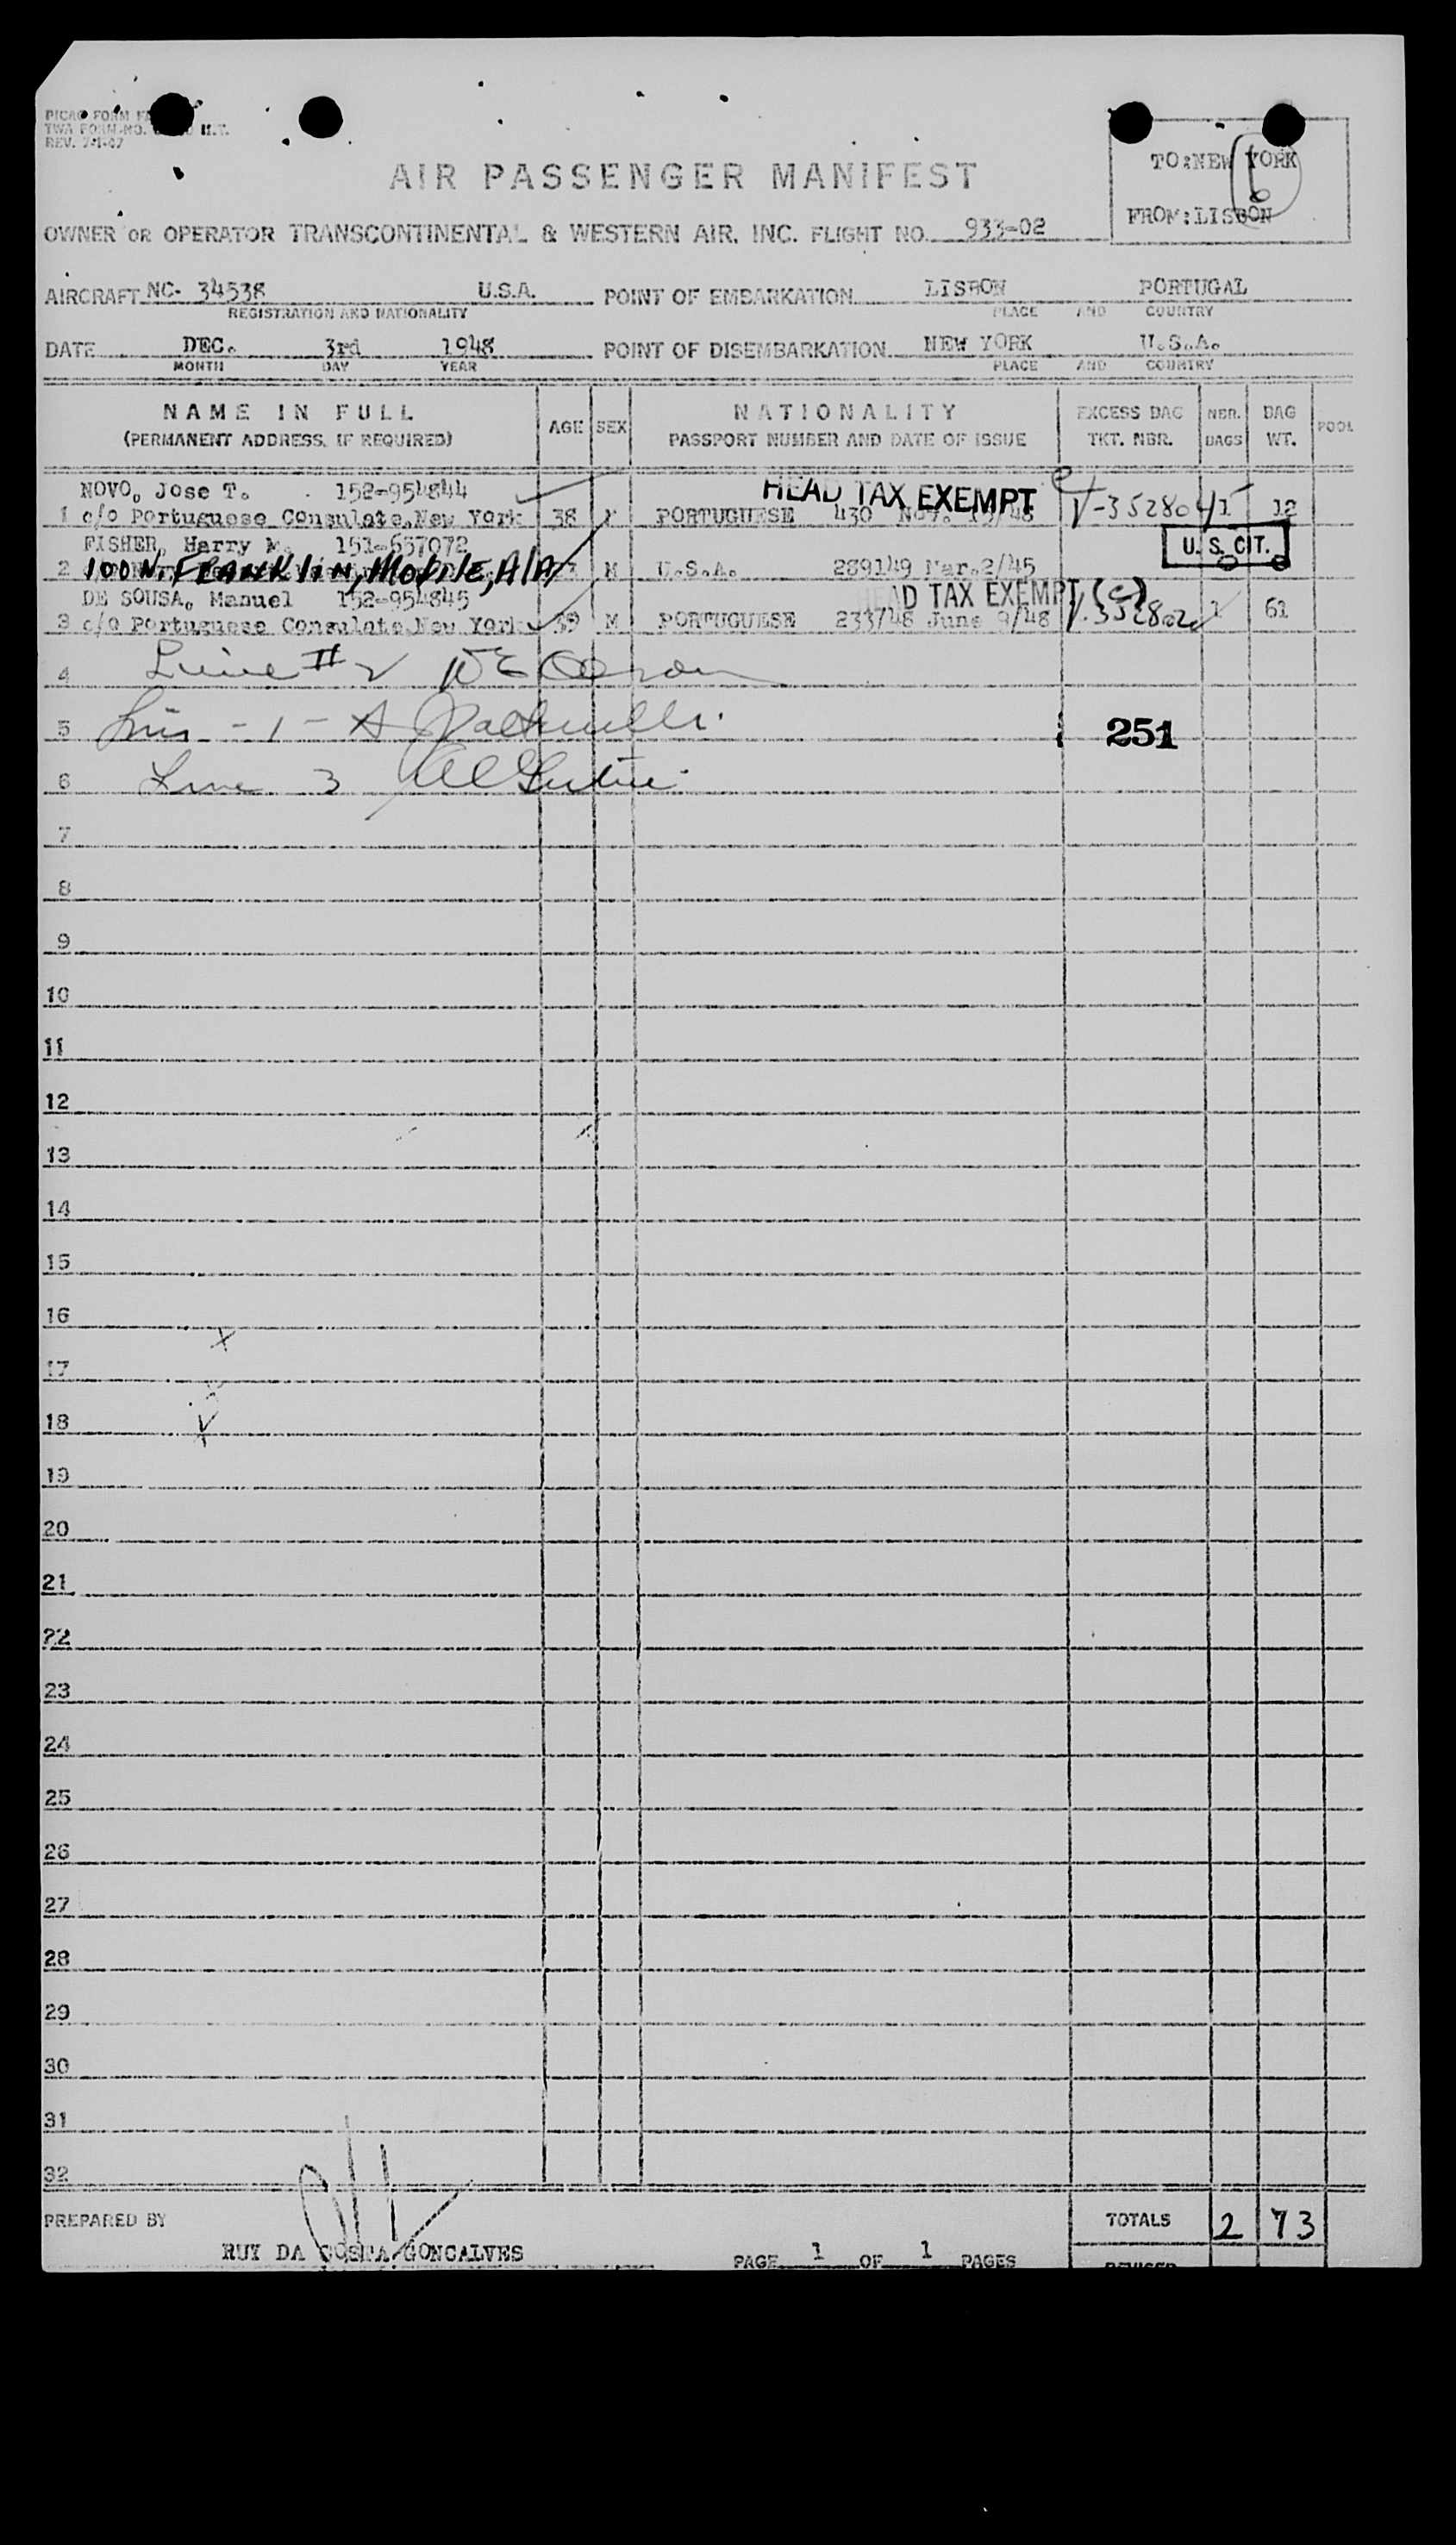 PICAO FORM
TWA FORM NO. H.T.
REV. 7-1-47
AIR PASSENGER MANIFEST
TO:NEW YORK
6
FROM:LISBON
OWNER OR OPERATOR TRANSCONTINENTAL & WESTERN AIR, INC. FLIGHT NO. 933-02
AIRCRAFT NC- 34538 U.S.A. POINT OF EMBARKATION LISBON PORTUGAL
REGISTRATION AND NATIONALITY PLACE AND COUNTRY
DATE DEC. 3rd 1948 POINT OF DISEMBARKATION NEW YORK U.S.A.
MONTH DAY YEAR PLACE AND COUNTRY
NAME IN FULL AGE SEX NATIONALITY EXCESS BAG NBR. BAG POOL
(PERMANENT ADDRESS, IF REQUIRED) PASSPORT NUMBER AND DATE OF ISSUE TKT. NBR. BAGS WT.
NOVO, Jose T. 152-954844 HEAD TAX EXEMPT
1 c/o Portuguese Consulate, New York 38 M PORTUGUESE 430 Nov. 19/48 V-352804 1 12
FISHER, Harry M. 151-657072 U. S. CIT.
2 100 N. FRANKlIN, MObIlE, AlA M U.S.A. 289149 Mar.2/45 0 0
DE SOUSA, Manuel 152-954845 HEAD TAX EXEMPT (c)
3 c/o Portuguese Consulate, New York 39 M PORTUGUESE 233/48 June 9/48 1 61
4 Line #2
5 - 1 - 251
6 Line 3
7
8
9
10
11
12
13
14
15
16
17
18
19
20
21
22
23
24
25
26
27
28
29
30
31
32
PREPARED BY TOTALS 2 73
RUY DA COSTA GONCALVES PAGE 1 OF 1 PAGES